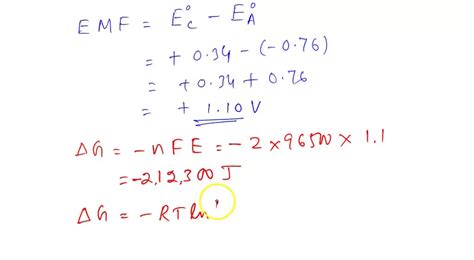 EMF = E°C − E°A
= + 0.34 − (−0.76)
= + 0.34 + 0.76
= + 1.10 V
ΔG = −nFE = −2 × 96500 × 1.1
= −2,12,300 J
ΔG = −RT ln